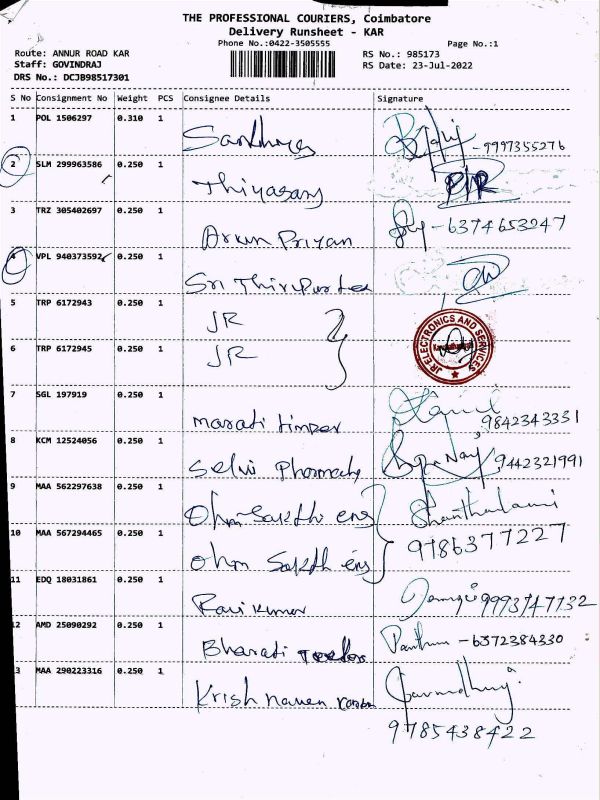 THE PROFESSIONAL COURIERS, Coimbatore
Delivery Runsheet - KAR
Phone No.:0422-3505555 Page No.:1
Route: ANNUR ROAD KAR RS No.: 985173
Staff: GOVINDRAJ RS Date: 23-Jul-2022
DRS No.: DCJB98517301
S No Consignment No Weight PCS Consignee Details Signature
1 POL 1506297 0.310 1 -9997355276
2 SLM 299963586 0.250 1 Thiyagary
3 TRZ 305402697 0.250 1 Arun Priyan -6374653247
4 VPL 940373592 0.250 1 Sri Thirupur tex
5 TRP 6172943 0.250 1 JR
6 TRP 6172945 0.250 1 JR
JR ELECTRONICS AND SERVICES
7 SGL 197919 0.250 1 marati timber 9842343331
8 KCM 12524056 0.250 1 Selvi Pharmacy 9442321991
9 MAA 562297638 0.250 1 Ohm Sakthi eng
10 MAA 567294465 0.250 1 Ohm Sakth eng 9786377227
11 EDQ 18031861 0.250 1 Ravi kumar
12 AMD 25090292 0.250 1 Bharati -6372384330
13 MAA 290223316 0.250 1 Krish naven
9785438422